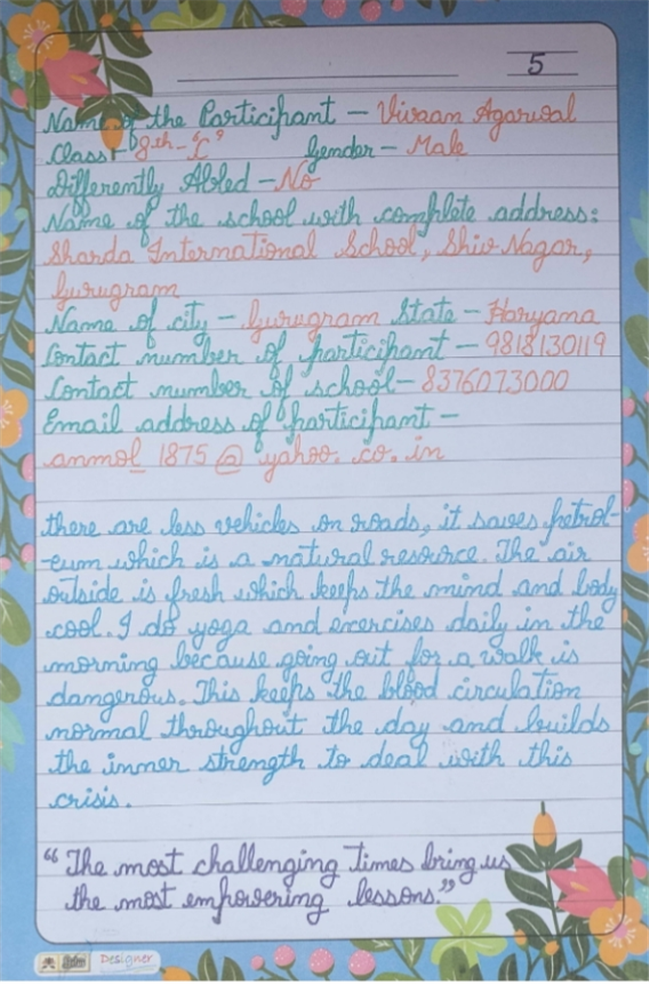 5
Name of the Participant - Vivaan Agarwal
Class - 8th - "C" Gender - Male
Differently Abled - No
Name of the school with complete address:
Sharda International School, Shiv Nagar,
Gurugram
Name of city - Gurugram State - Haryana
Contact number of participant - 9818130119
Contact number of school - 8376073000
Email address of participant -
anmol_1875@yahoo.co.in
there are less vehicles on roads, it saves petrol-
-eum which is a natural resource. The air
outside is fresh which keeps the mind and body
cool. I do yoga and exercises daily in the
morning because going out for a walk is
dangerous. This keeps the blood circulation
normal throughout the day and builds
the inner strength to deal with this
crisis.
"The most challenging times bring us
the most empowering lessons."
Designer